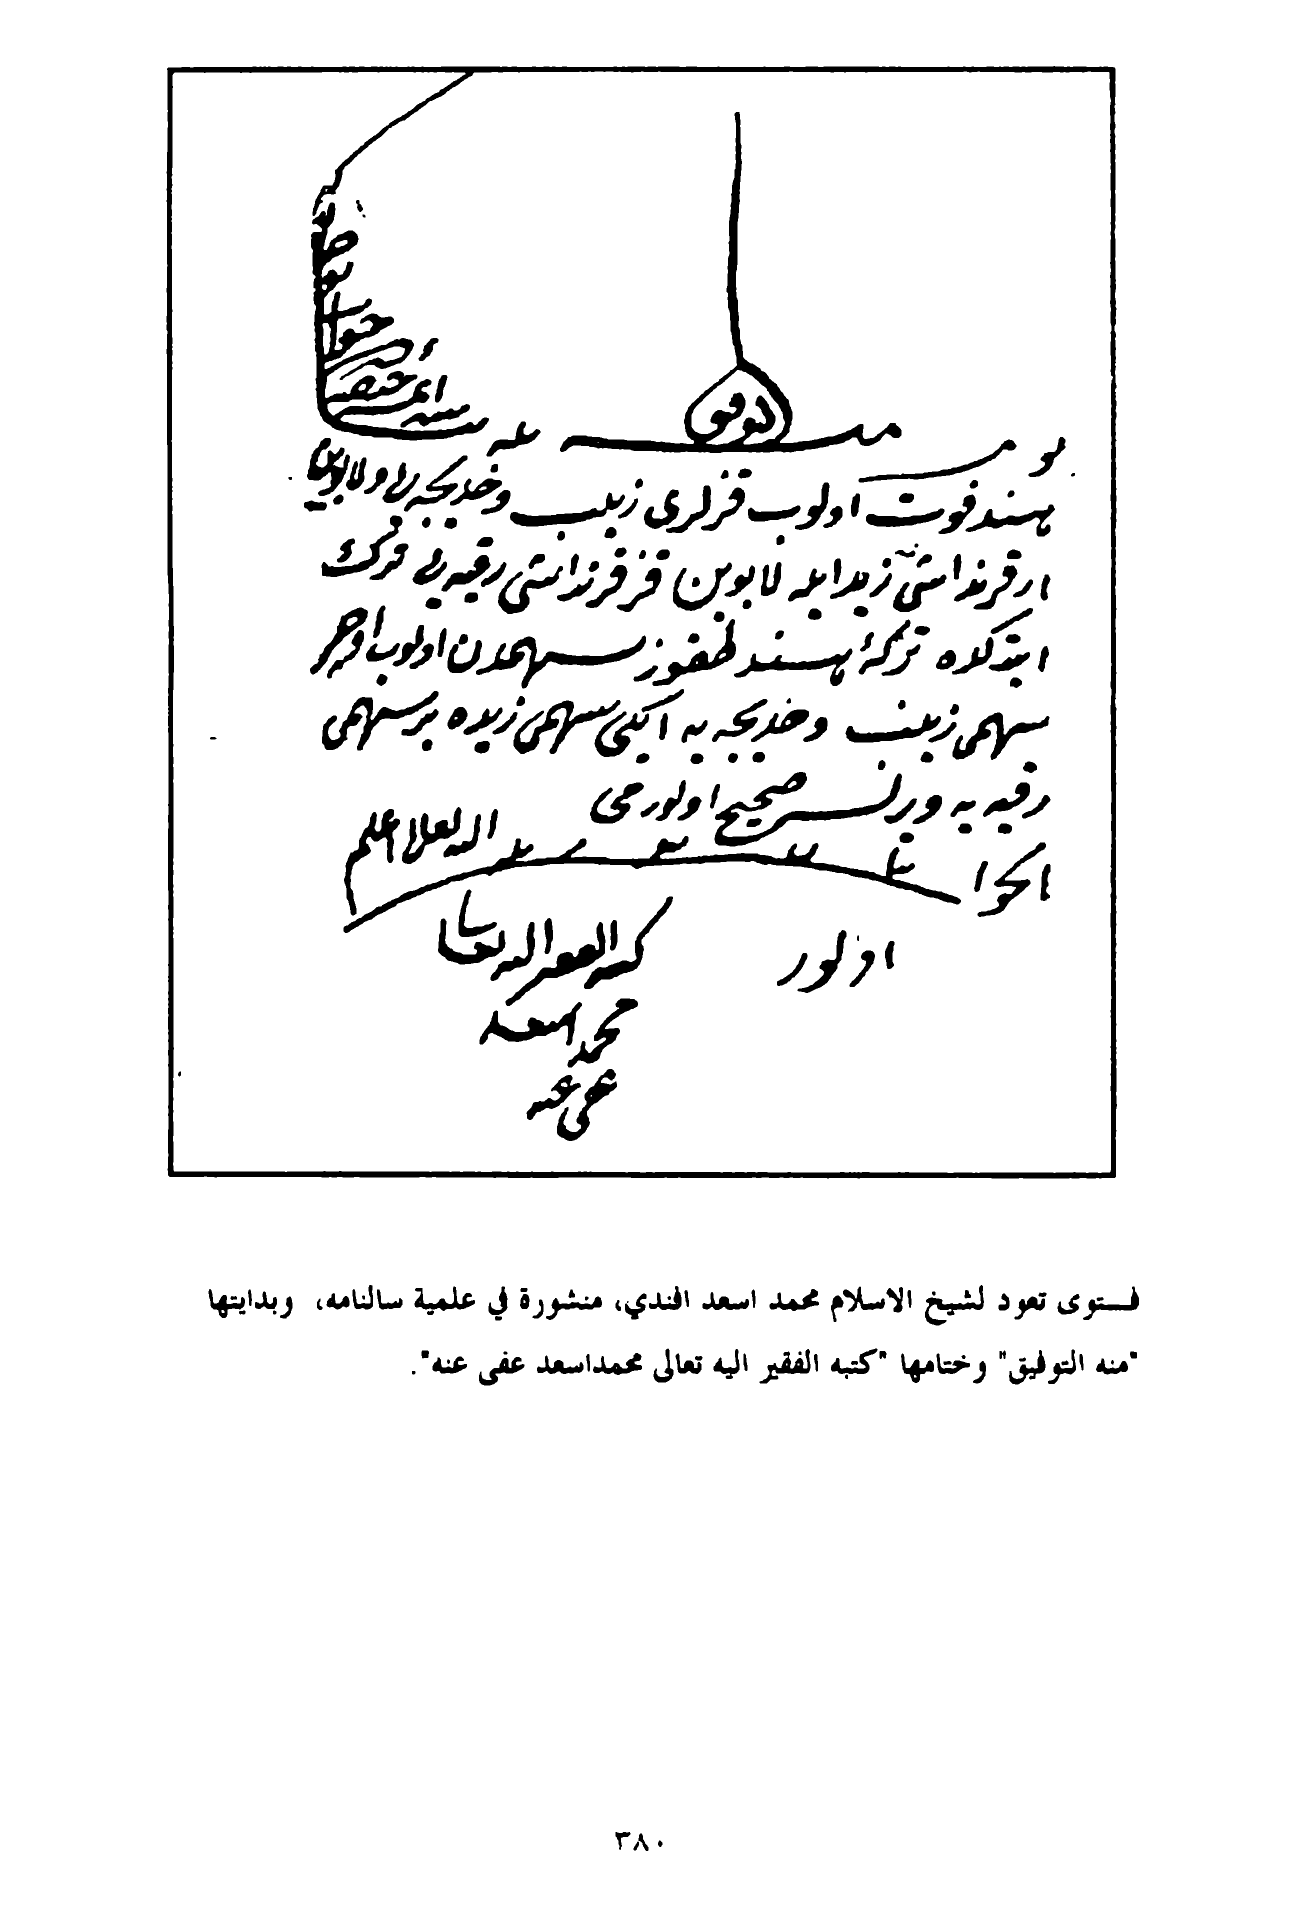 منه التوفيق
هند فوت اولوب قزلرى زينب وخديجه يى ولابوين
ار قرنداشى زيد ايله لابوين قز قرنداشى رقيه يى ترك
ايتدكده تركهٔ هند طقوز سهمدن اولوب اوچر
سهمى زينب وخديجه يه ايكى سهمى زيده بر سهمى
رقيه يه ويرلسه صحيح اولورمى
الجواب الله تعالى اعلم
اولور
كتبه الفقير اليه تعالى
محمد اسعد
عفى عنه
فـتوى تعود لشيخ الاسلام محمد اسعد افندي، منشورة في علمية سالنامه، وبدايتها
"منه التوفيق" وختامها "كتبه الفقير اليه تعالى محمداسعد عفى عنه".
٣٨٠